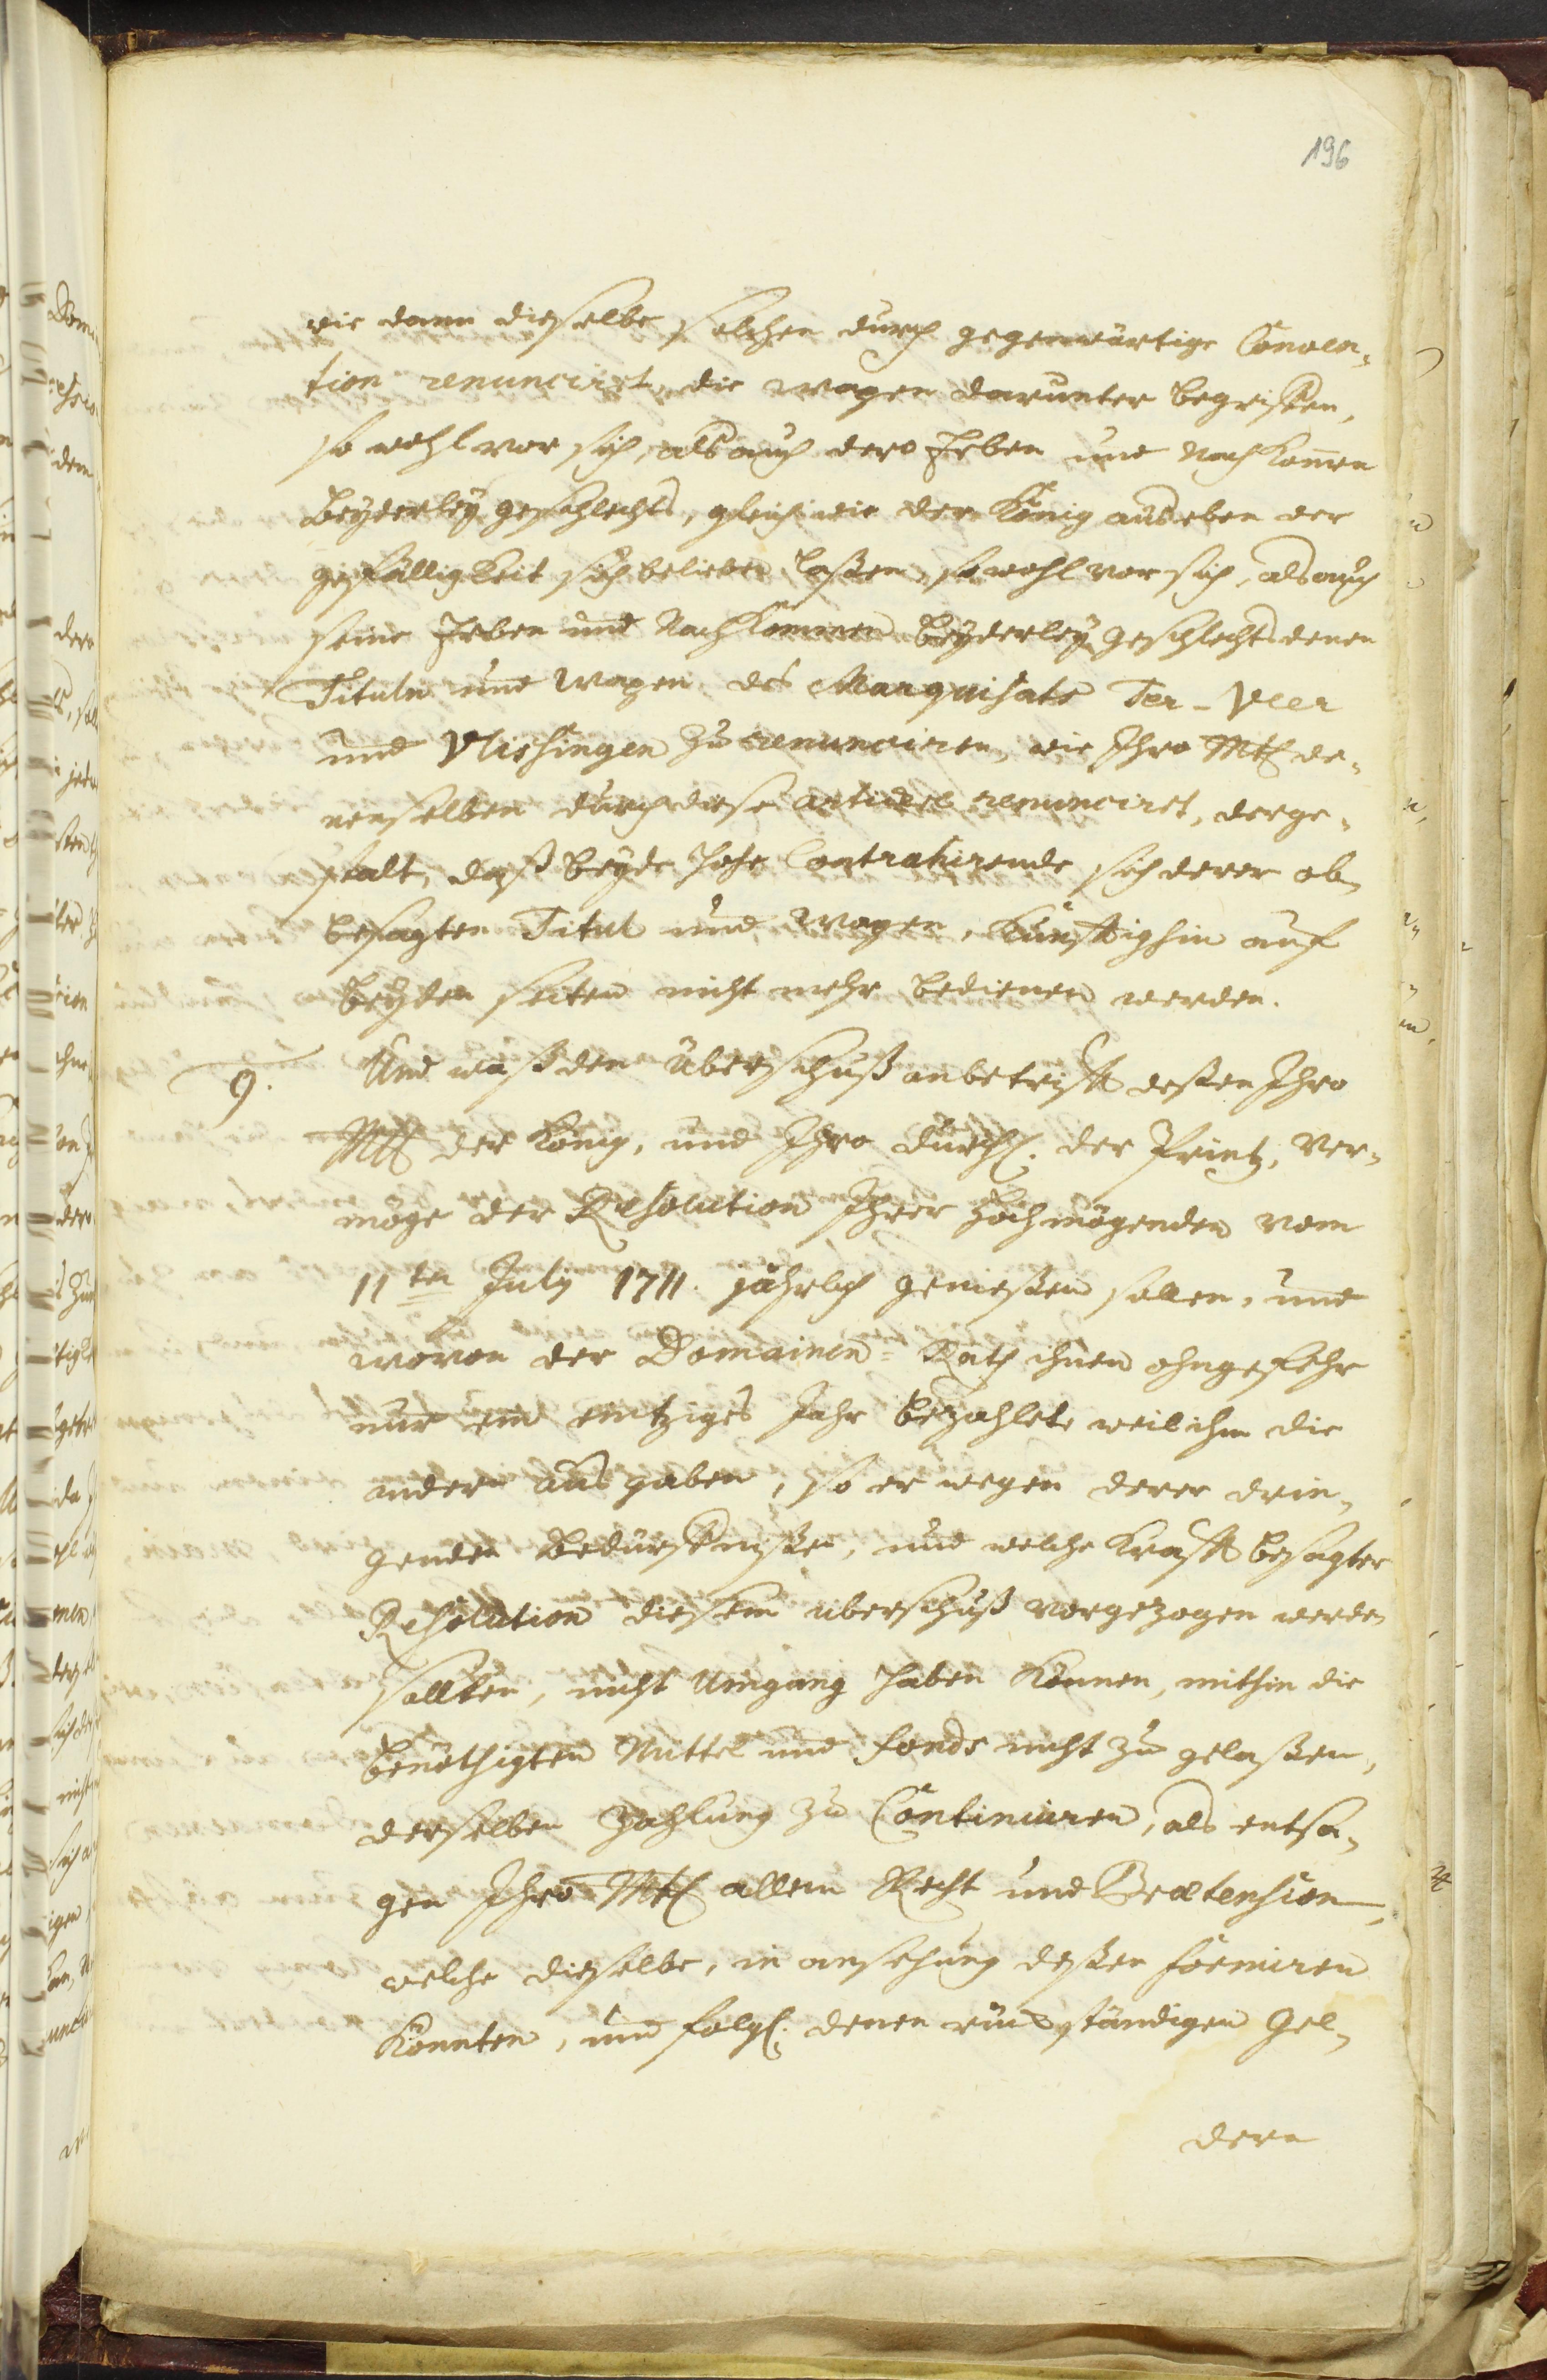 196
wie dann dieselbe solchen durch gegenwärtige Conven¬
tion renunciret, die Wapen darunter begriffen,
so wohl vor sich, als auch dero Erben und Nachkomen
beyderley geschlechts, gleichwie der König aus eben der
gefälligkeit sich belieben laßen, so wohl vor sich, als auch
seine Erben und Nachkommen beyderley geschlechts denen
Tituln und Wapen des Marquisats Ter-Veer
und Vlissingen zu renunciren, wie Ihro Mtt de¬
nenselben durch diese articul renunciret, derge¬
stalt, daß beyde hohe Contrahirende sich derer ob¬
besagten Titul und Wapen, künfftighin auf
beyden seiten nicht mehr bedienen werden.
9. Und was den überschuß anbetrifft deßen Ihro
Mtt der König, und Ihro Durchl. der Printz, ver¬
möge der Resolution Ihrer Hochmögenden vom
11ten July 1711. jährlich genießen sollen, und
wovon der Domainen=Rath ihnen ohngefehr
nur ein eintziges Jahr bezahlete weil ihm die
andern ausgaben, so er wegen derer drin¬
genden Bedürffnißen, und welche krafft besagter
Resolution diesem überschuß vorgezogen werden
sollten, nicht Umgang haben können, mithin die
benöthigten Mittel und fonds nicht zu gelaßen,
derselben Zahlung zu Continuiren, als entsa¬
gen Ihro Mtt allem Recht und Prætension,
welche dieselbe, in ansehung deßen formiren
könnten, und folgl. denen rückständigen Gel¬
dern